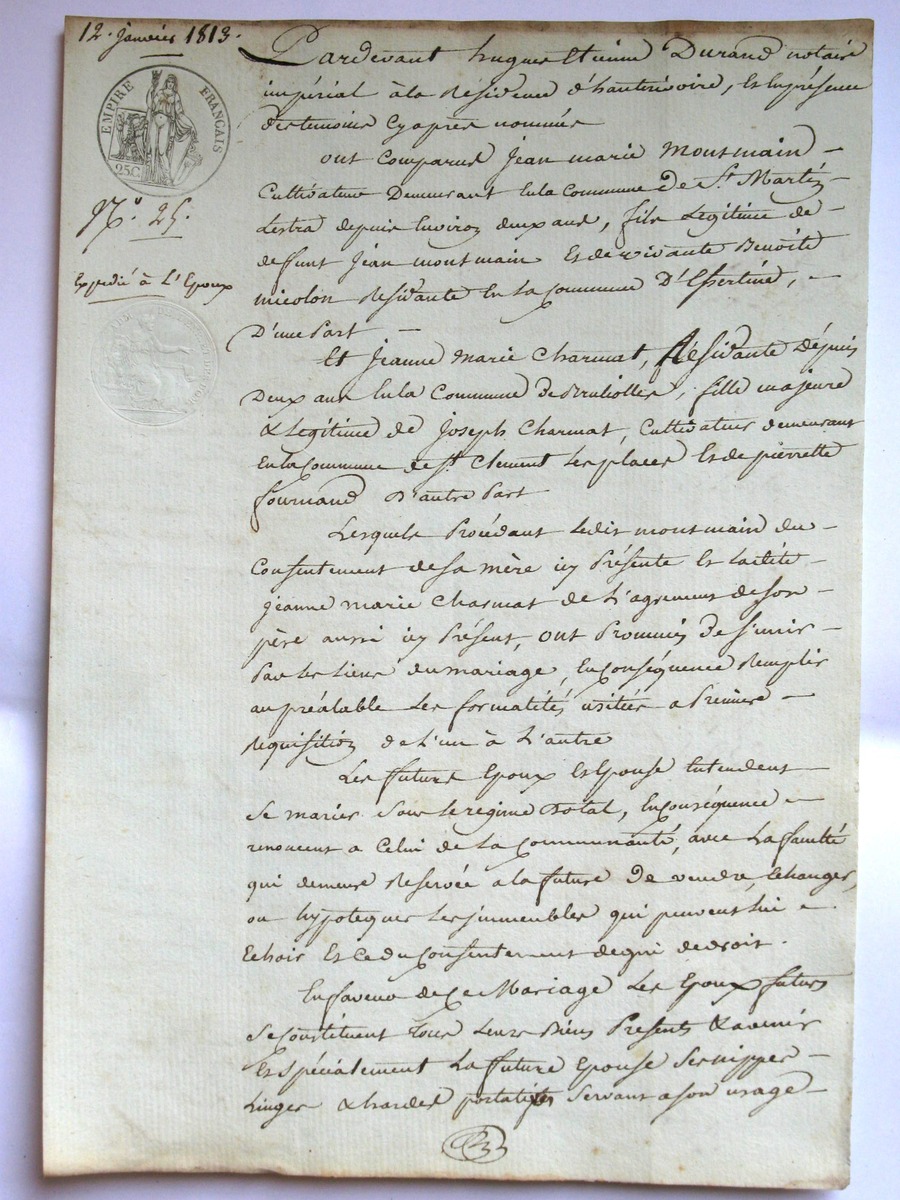 12. Janvier 1813.
EMPIRE FRANÇAIS
25 C.
N.º 25.
Expedié à L'Epoux
Pardevant hugues Etienne Durand notaire
impérial à la Résidence d'hauterivoire, Et En présence
des temoins Cyaprès nommés
ont Comparus Jean marie Montmain –
Cultivateur Demeurant En la Commune de St. Martin
Lestra depuis Environ deux ans, fils Legitime de –
defunt Jean montmain Et de vivante Benoite
micolon Residante En La Commune D'Essertine, –
D'une Part –
Et Jeanne Marie Charmat, Résidante Dépuis
Deux ans En la Commune de Brulliolles, fille majeure
& Legitime de Joseph Charmat, Cultivateur demeurant
En la Commune de St. Clement Les places Et de pierrette
fournand D'autre Part
Lesquels Procédant Ledit montmain du –
Consentement de Sa mère icy Présente Et Ladite –
Jeanne marie Charmat de L'agrement de Son –
père aussi icy Présent, ont Prommis de S'unir –
Par les liens du mariage, En Conséquence Remplir
au préalable Les formalités usitées a Premiere –
Requisition de L'un à L'autre
Les futurs Epoux Et Epouse Entendent –
Se marier Sous le regime Dotal, En Conséquence –
renoncent a Celui de La Communauté, avec La faculté
qui demeure Reservée a la future De vendre, Echanger,
ou hypotequer Les immeubles qui peuvent lui –
Echoir Et Ce du Consentement de qui de droit.
En faveur de Ce Mariage Les Epoux futurs
Se Constituent tous Leurs Biens Presents & avenir
Et Spécialement La future Epouse Ses nippes –
Linges & hardes portatifs Servant a Son usage –